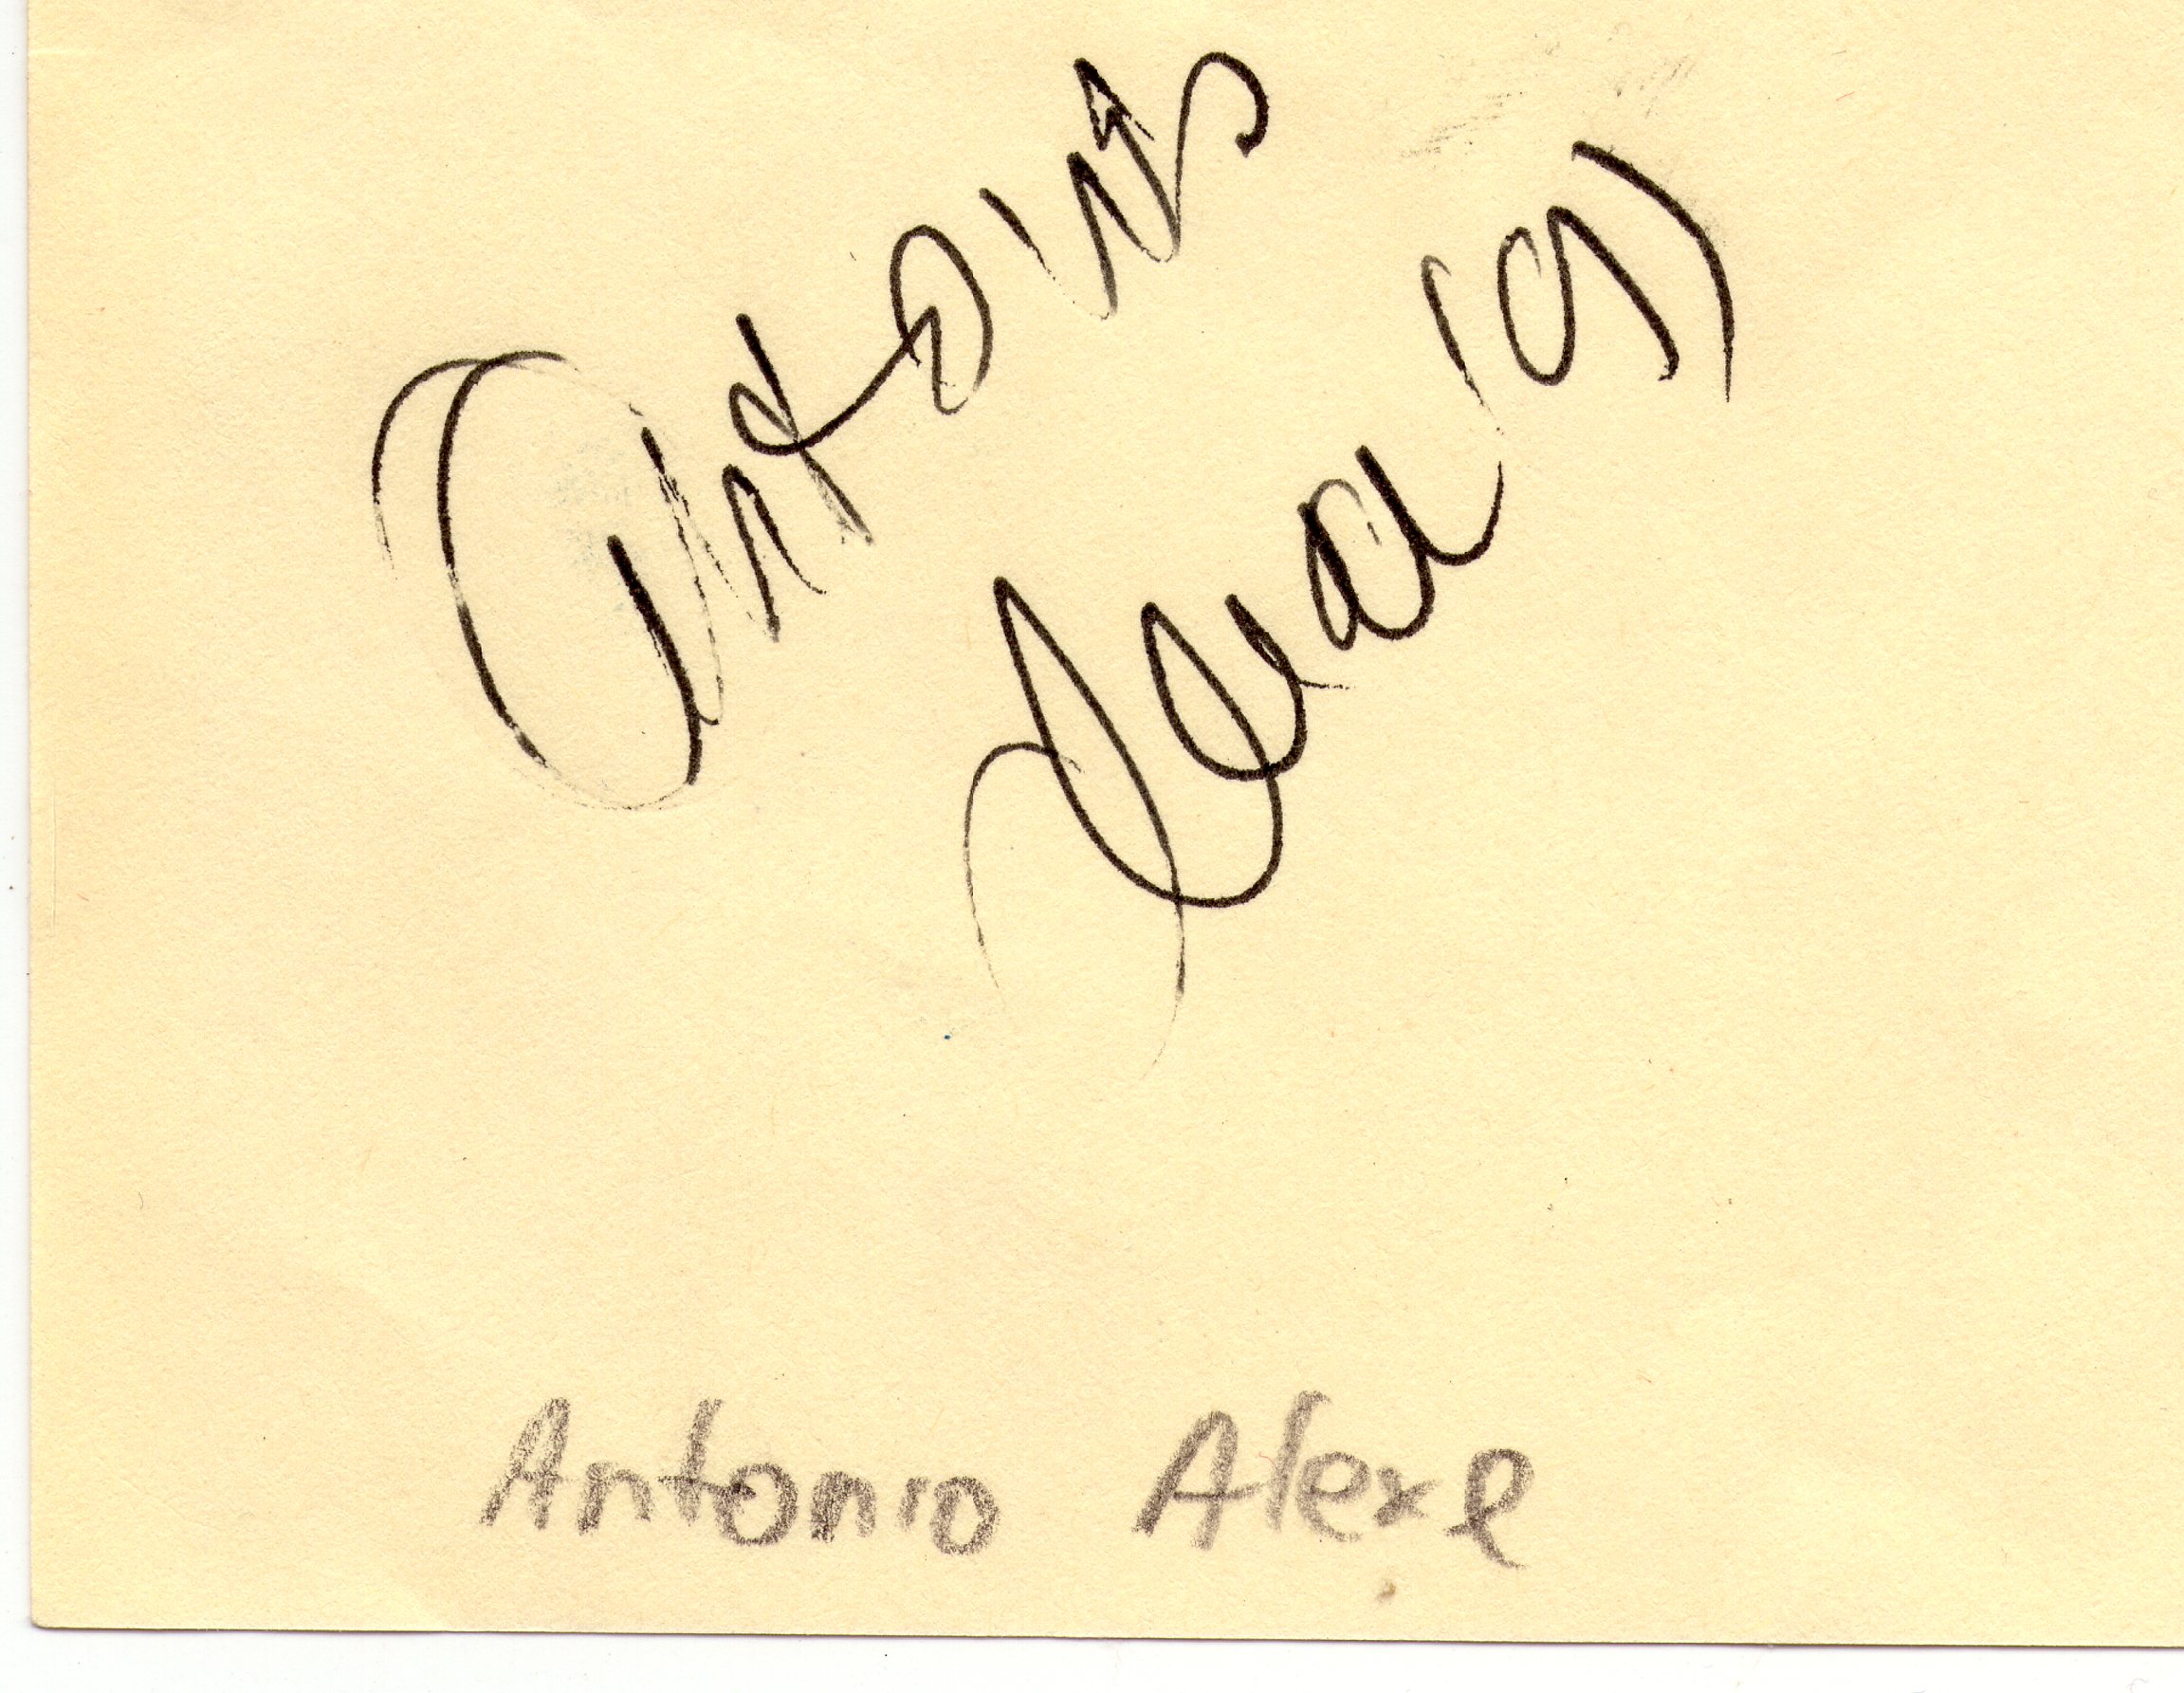 Antonio
Alexe (9)
Antonio Alexe